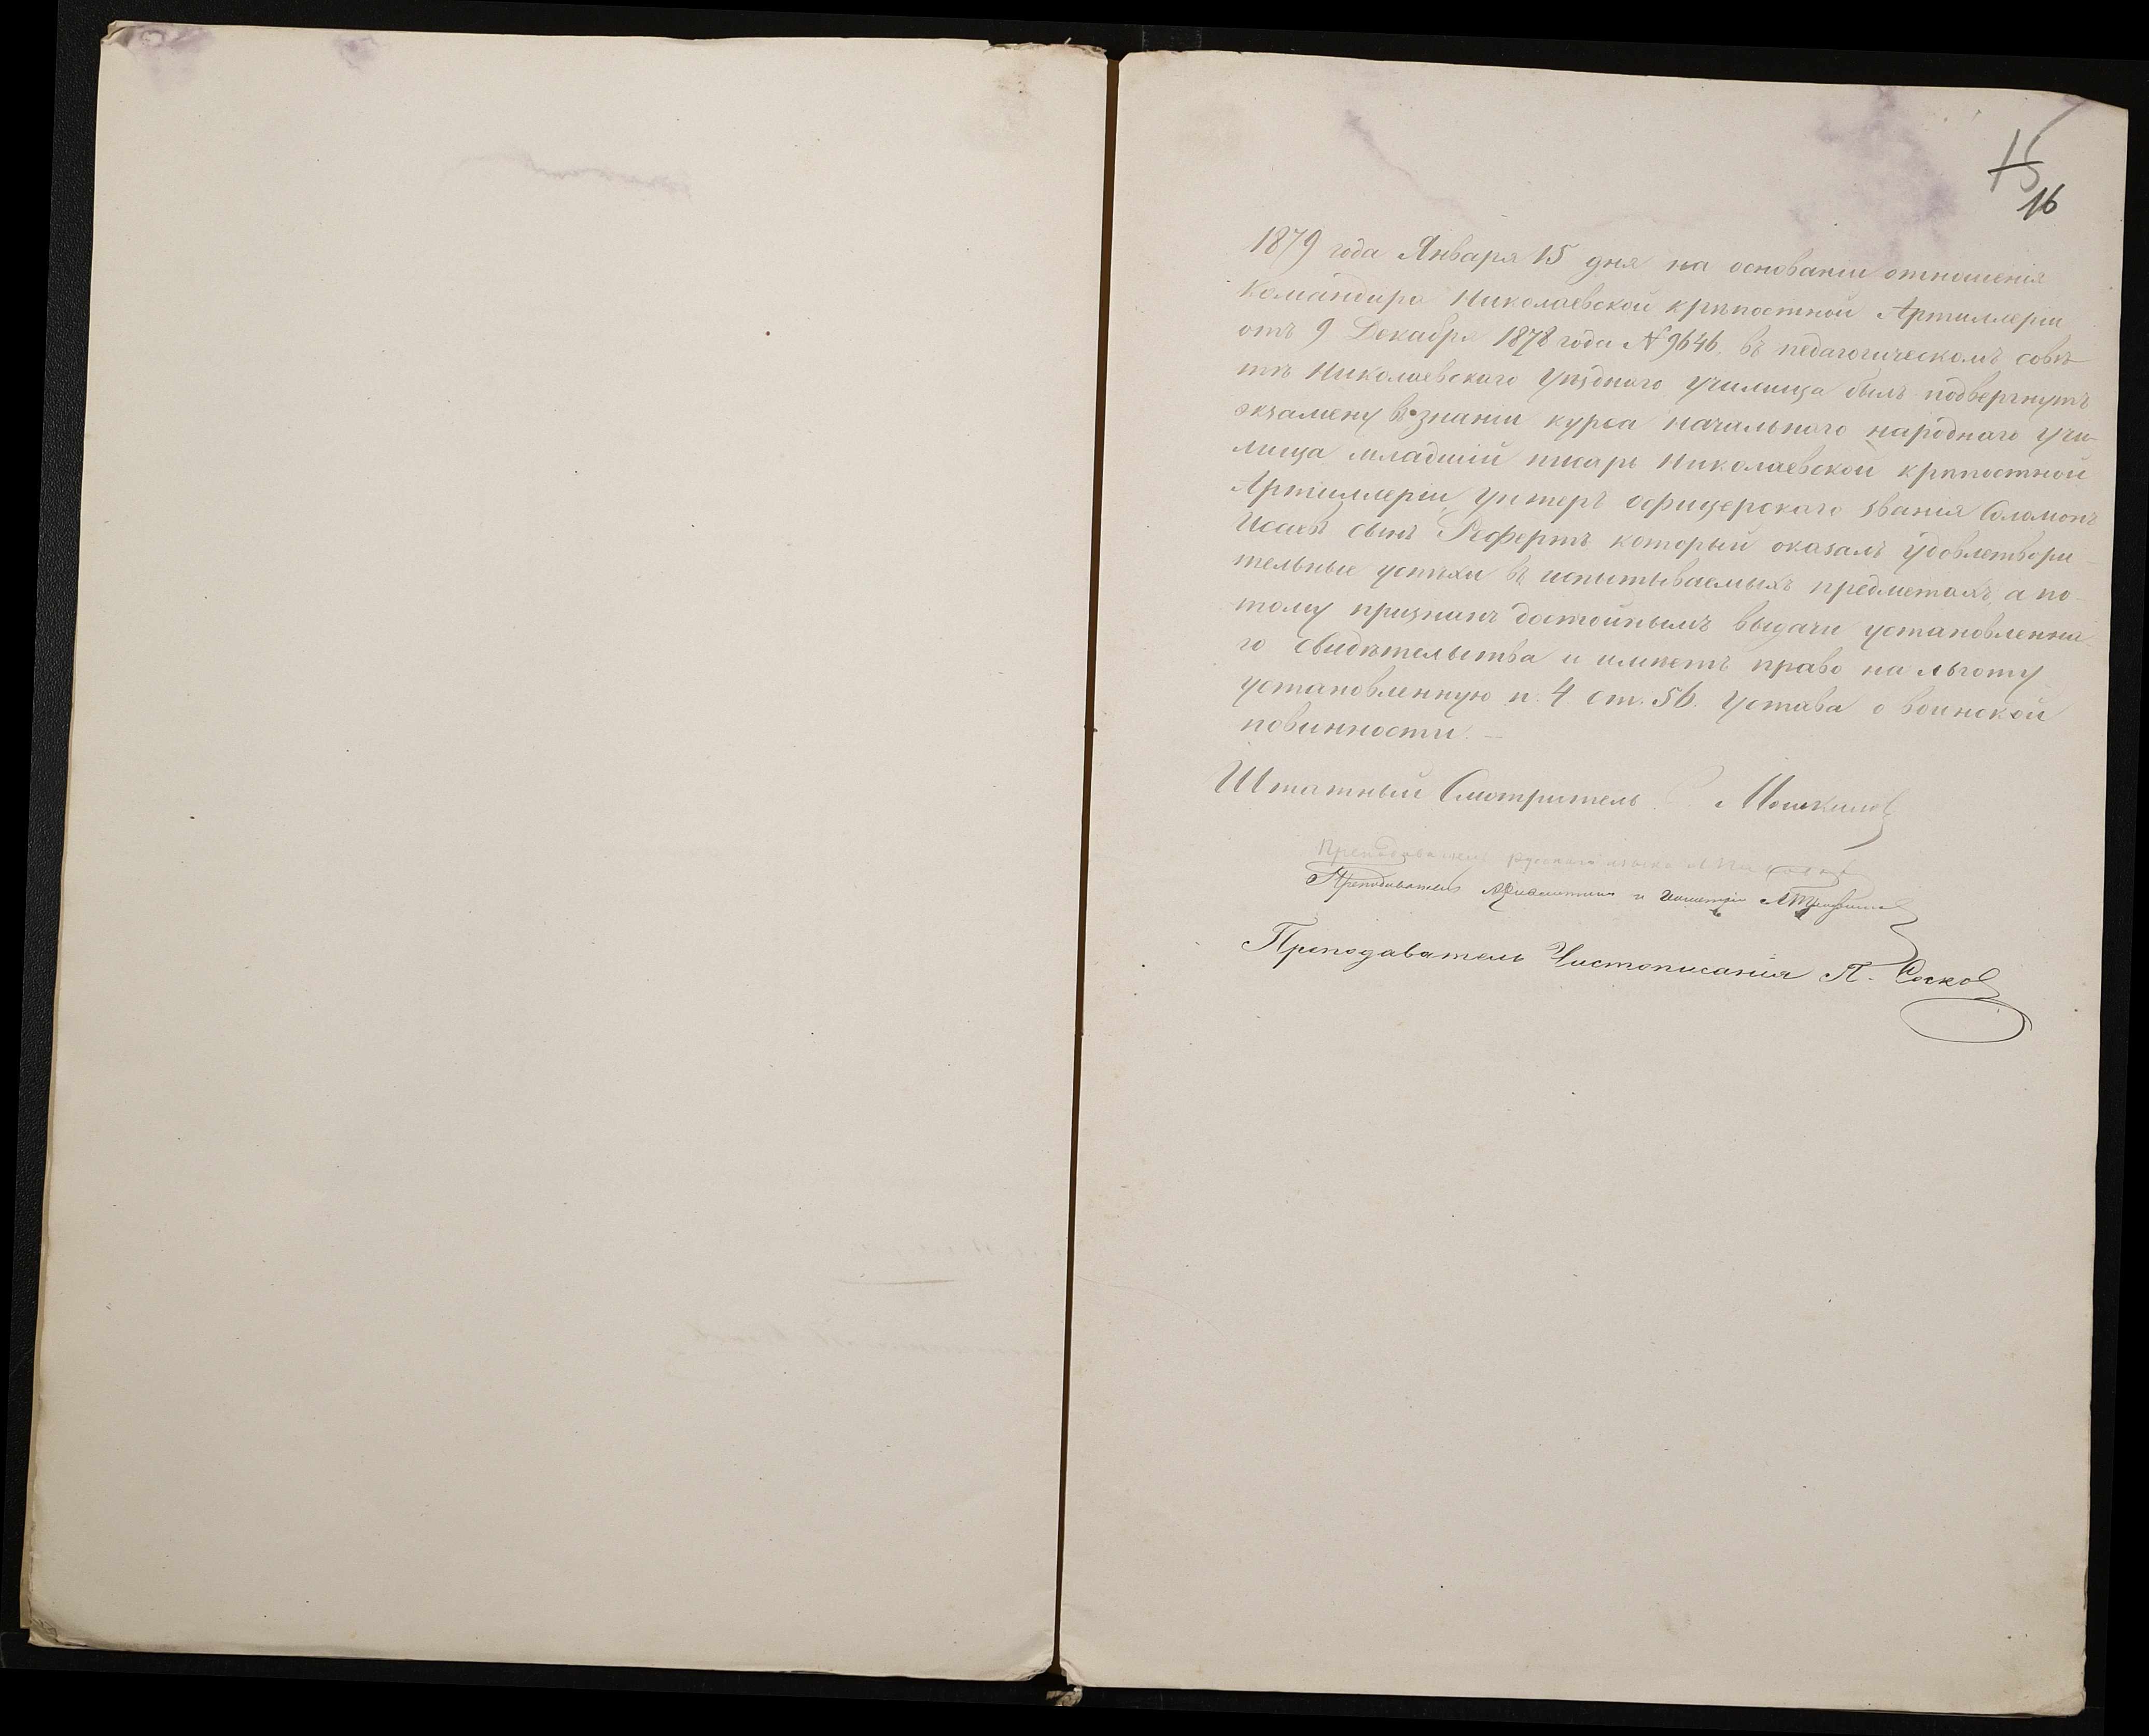 15
16
1879 года Января 15 дня на основаніи отношенія
Командира Николаевской крѣпостной Артиллеріи
отъ 9 Декабря 1878 года № 9646. въ педагогическомъ совѣ-
тѣ Николаевскаго Уѣзднаго Училища былъ подвергнутъ
экзамену въ знаніи курса начальнаго народнаго учи-
лища младшій писарь Николаевской крѣпостной
Артиллеріи, унтеръ офицерскаго званія Соломонъ
Исаевъ сынъ Рефертъ который оказалъ удовлетвори-
тельные успѣхи въ испытываемыхъ предметахъ, а по-
тому признанъ достойнымъ выдачи установленна-
го свидѣтельства и имѣетъ право на льготу
установленную п. 4 ст. 56. Устава о воинской
повинности. —
Штатный Смотритель Мошкинов
Преподаватель русскаго языка
Преподаватель Ариѳметики и Геометріи
Преподаватель Чистописанія П. Соков